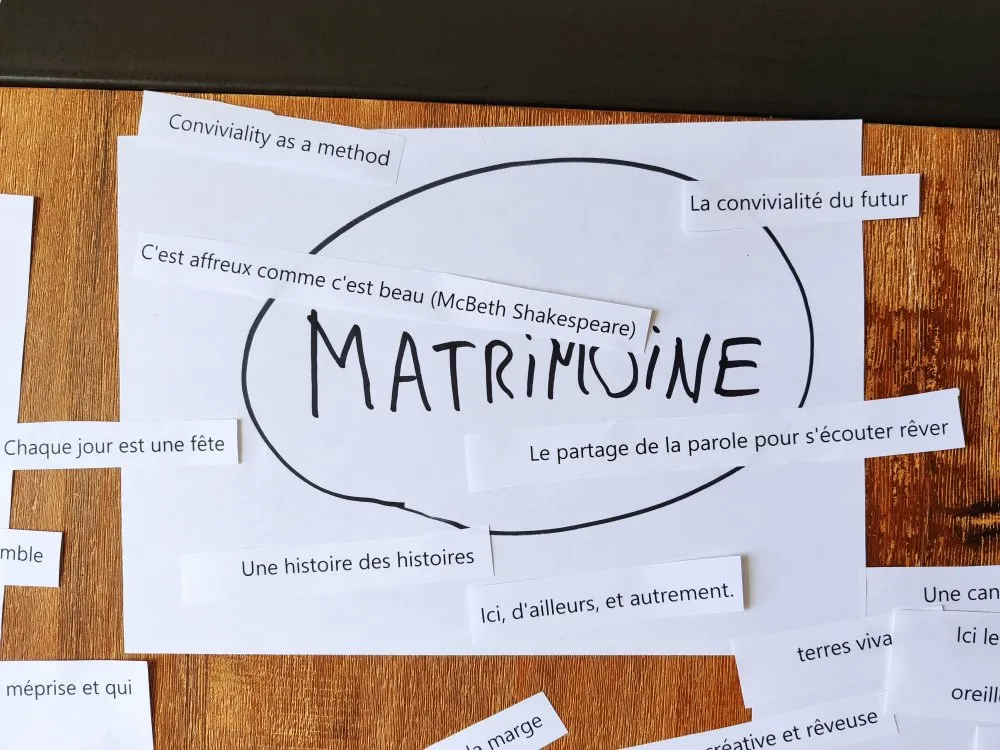 Conviviality as a method
La convivialité du futur
C'est affreux comme c'est beau (McBeth Shakespeare)
MATRIMOINE
Chaque jour est une fête
Le partage de la parole pour s'écouter rêver
mble
Une histoire des histoires
Ici, d'ailleurs, et autrement.
Une can
terres viva
Ici le
méprise et qui
oreill
la marge
créative et rêveuse